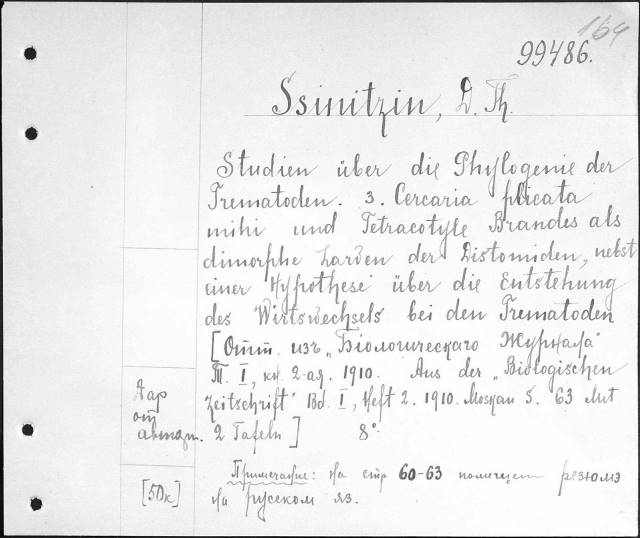 164
99486.
Ssinitzin, D. Th.
Studien über die Phylogenie der
Trematoden. 3. Cercaria plicata
mihi und Tetracotyle Brandes als
dimorphe Larven der Distomiden, nebst
einer Hypothese über die Entstehung
des Wirtswechsels bei den Trematoden
[Отт. изъ „Біологическаго Журнала"
Т. I, кн. 2-ая. 1910. Aus der „Biologischen
Zeitschrift" Bd. I, Heft 2. 1910. Moskau S. 63 Mit
2 Tafeln] 8°
Дар
от
автор.
[50к]
Примечание: На стр 60-63 помещен резюмэ
на русском яз.